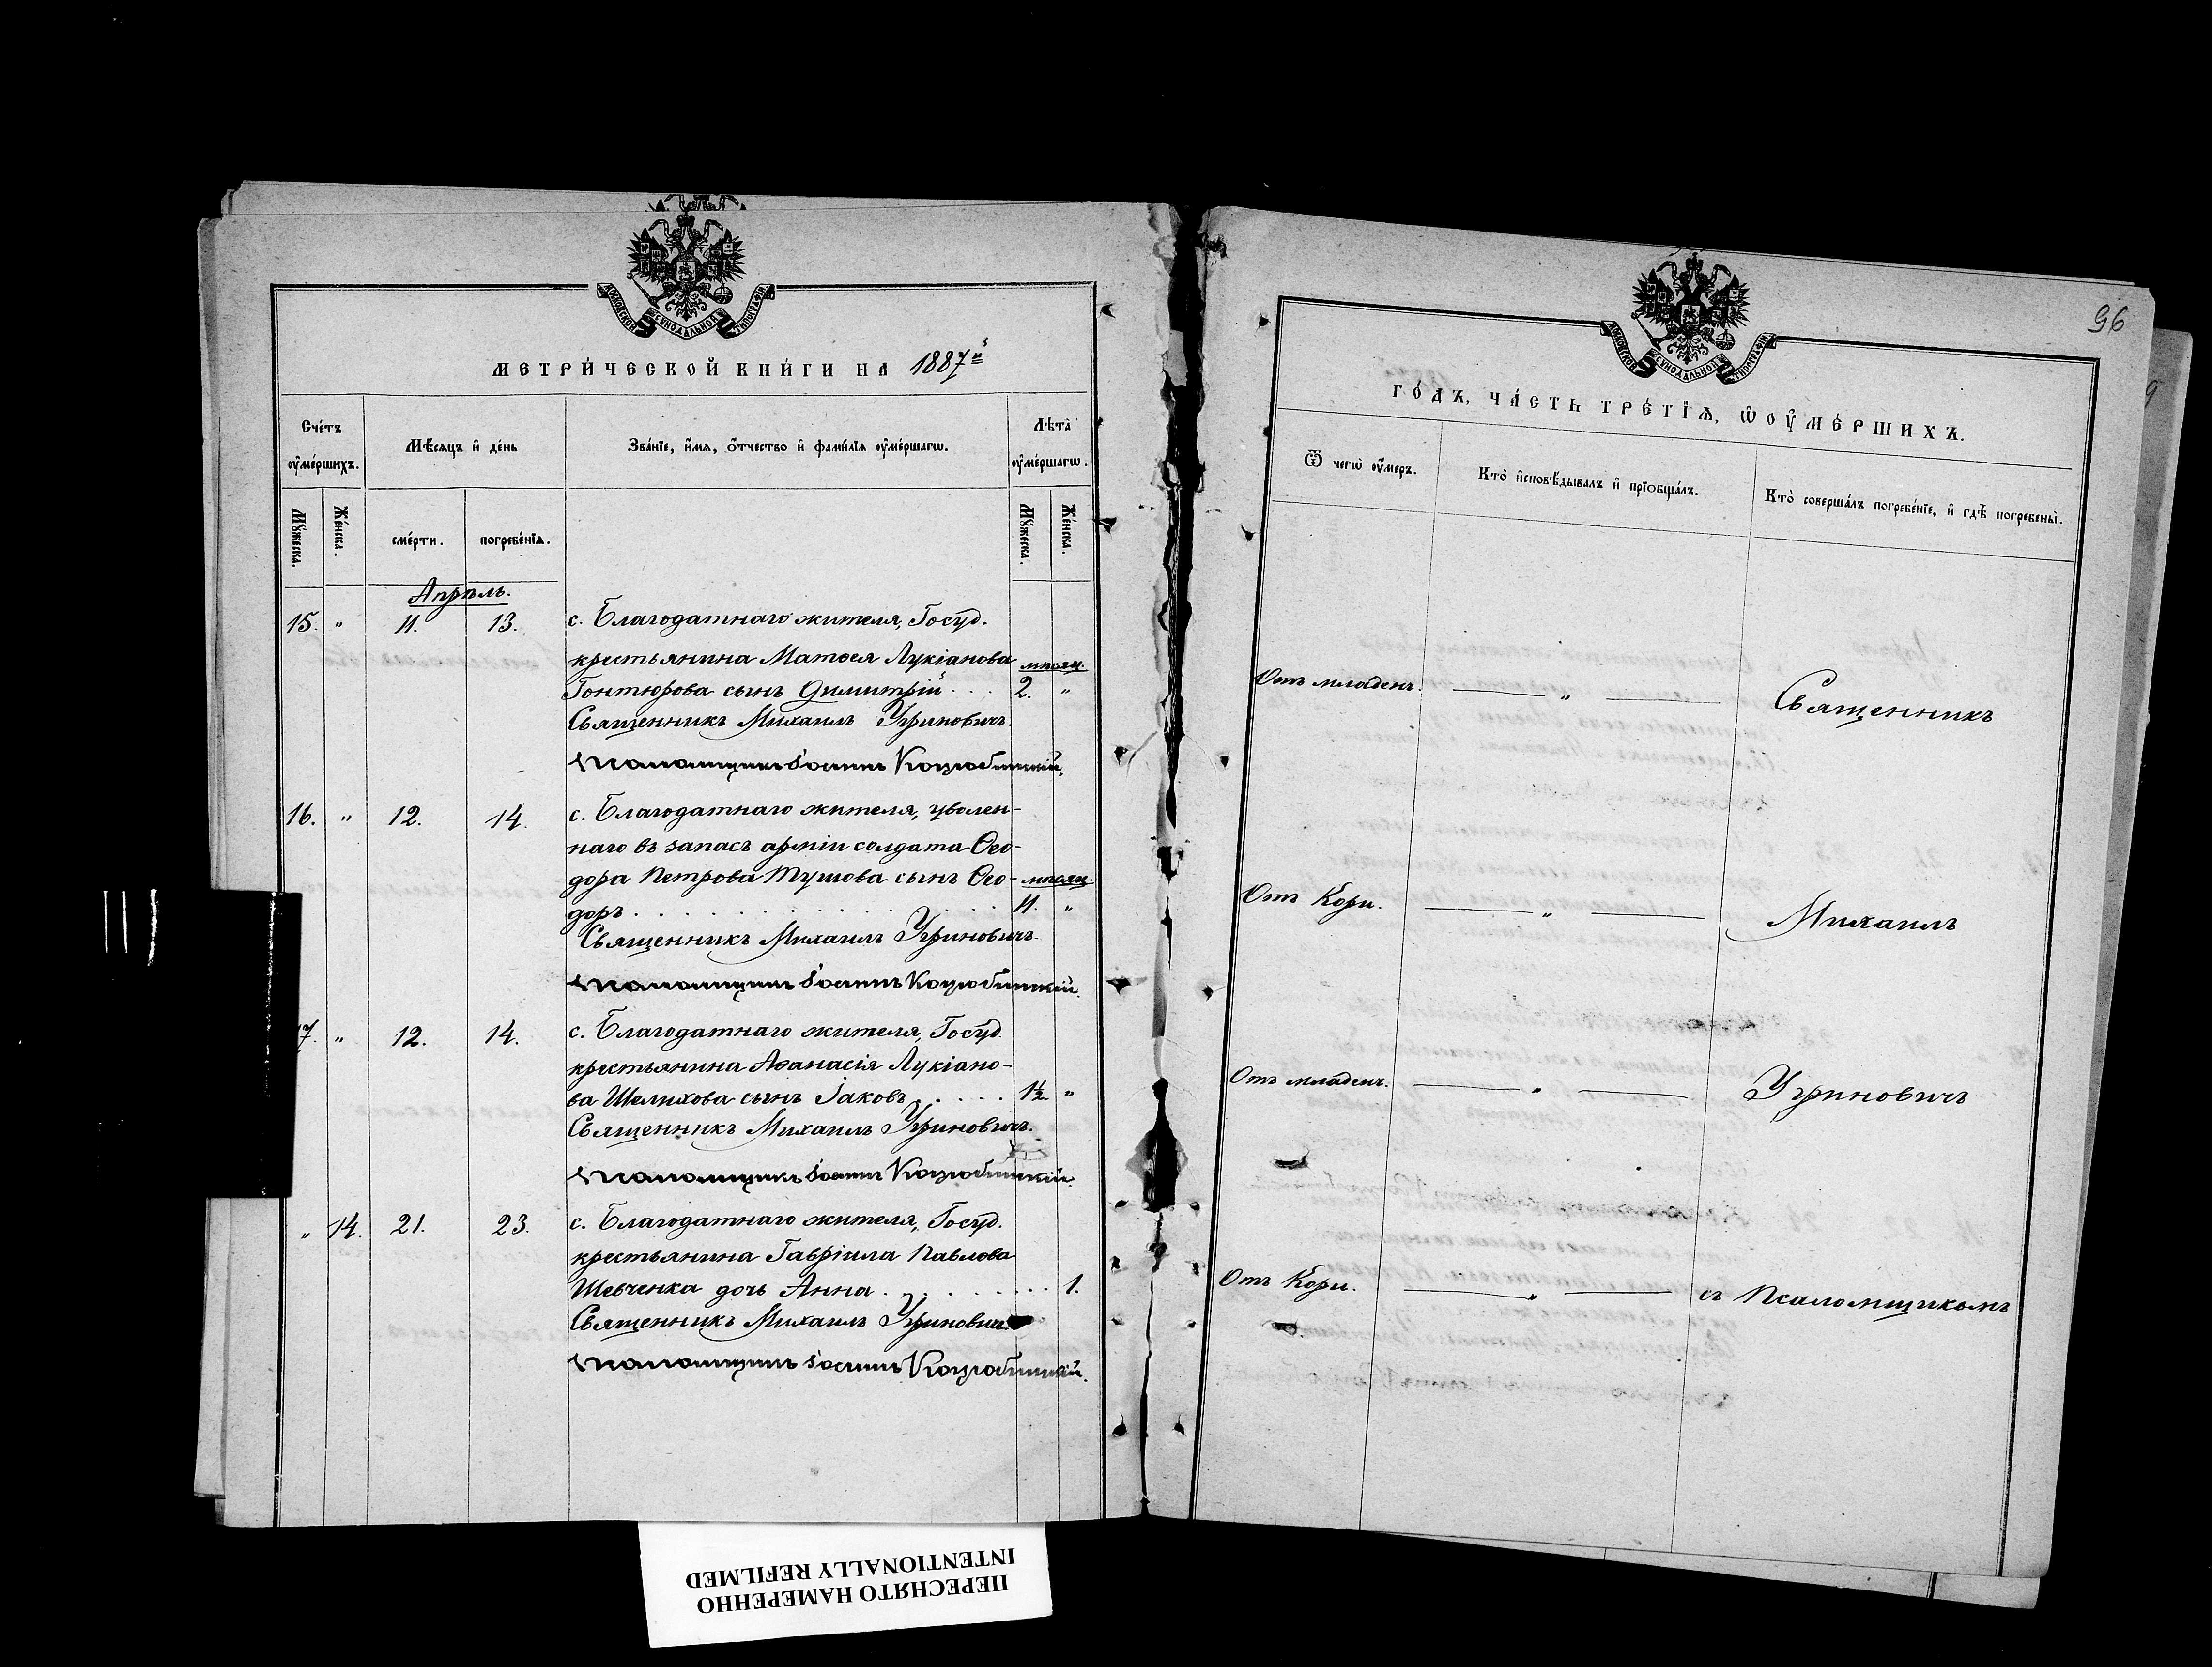 МОСКОВСКОЙ СѴНОДАЛЬНОЙ ТИПОГРАФІИ
МЕТРИ́ЧЕСКОЙ КНИ́ГИ НА 1887й
Сче́тъ ᲂу҆ме́ршихъ.
Мѣ́сяцъ и҆ де́нь
Зва́нїе, и҆́мѧ, ѻ҆́тчество и҆ фами́лїѧ ᲂу҆ме́ршагѡ.
Лѣта̀ ᲂу҆ме́ршагѡ.
Мꙋ́жеска.
Же́нска.
сме́рти.
погребе́нїѧ.
Мꙋ́жеска.
Же́нска.
Апрѣль.
15. " 11. 13. с. Благодатнаго жителя, Госуд.
крестьянина Матѳея Лукіанова мѣсяц.
Гонтюрова сынъ Димитрій . . . 2. "
Священникъ Михаилъ Угриновичъ.
Псаломщикъ Іоаннъ
16. " 12. 14. с. Благодатнаго жителя, уволен-
наго въ запасъ арміи солдата Ѳео-
дора Петрова Тушова сынъ Ѳео- мѣсяц.
доръ . . . . . . . . . . . 11. "
Священникъ Михаилъ Угриновичъ.
Псаломщикъ Іоаннъ
17. " 12. 14. с. Благодатнаго жителя, Госуд.
крестьянина Аѳанасія Лукіано-
ва Шелихова сынъ Іаковъ . . . . . 1½ "
Священникъ Михаилъ Угриновичъ.
Псаломщикъ Іоаннъ
" 14. 21. 23. с. Благодатнаго жителя, Госуд.
крестьянина Гавріила Павлова
Шевченка дочь Анна . . . . . . . . . 1.
Священникъ Михаилъ Угриновичъ
Псаломщикъ Іоаннъ
96
МОСКОВСКОЙ СѴНОДАЛЬНОЙ ТИПОГРАФІИ
ГО́ДЪ, ЧА́СТЬ ТРЕ́ТЇѦ, Ѡ҆ ОУ҆МЕ́РШИХЪ.
Ѿ чегѡ̀ ᲂу҆́меръ.
Кто̀ и҆сповѣ́дывалъ и҆ прїѡбща́лъ.
Кто̀ соверша́лъ погребе́нїе, и҆ гдѣ̀ погребены̀.
Отъ младенч. — " — Священникъ
Отъ Кори. — " — Михаилъ
Отъ младенч. — " — Угриновичъ
Отъ Кори. — " — съ Псаломщикомъ
ПЕРЕСНЯТО НАМЕРЕННО
INTENTIONALLY REFILMED